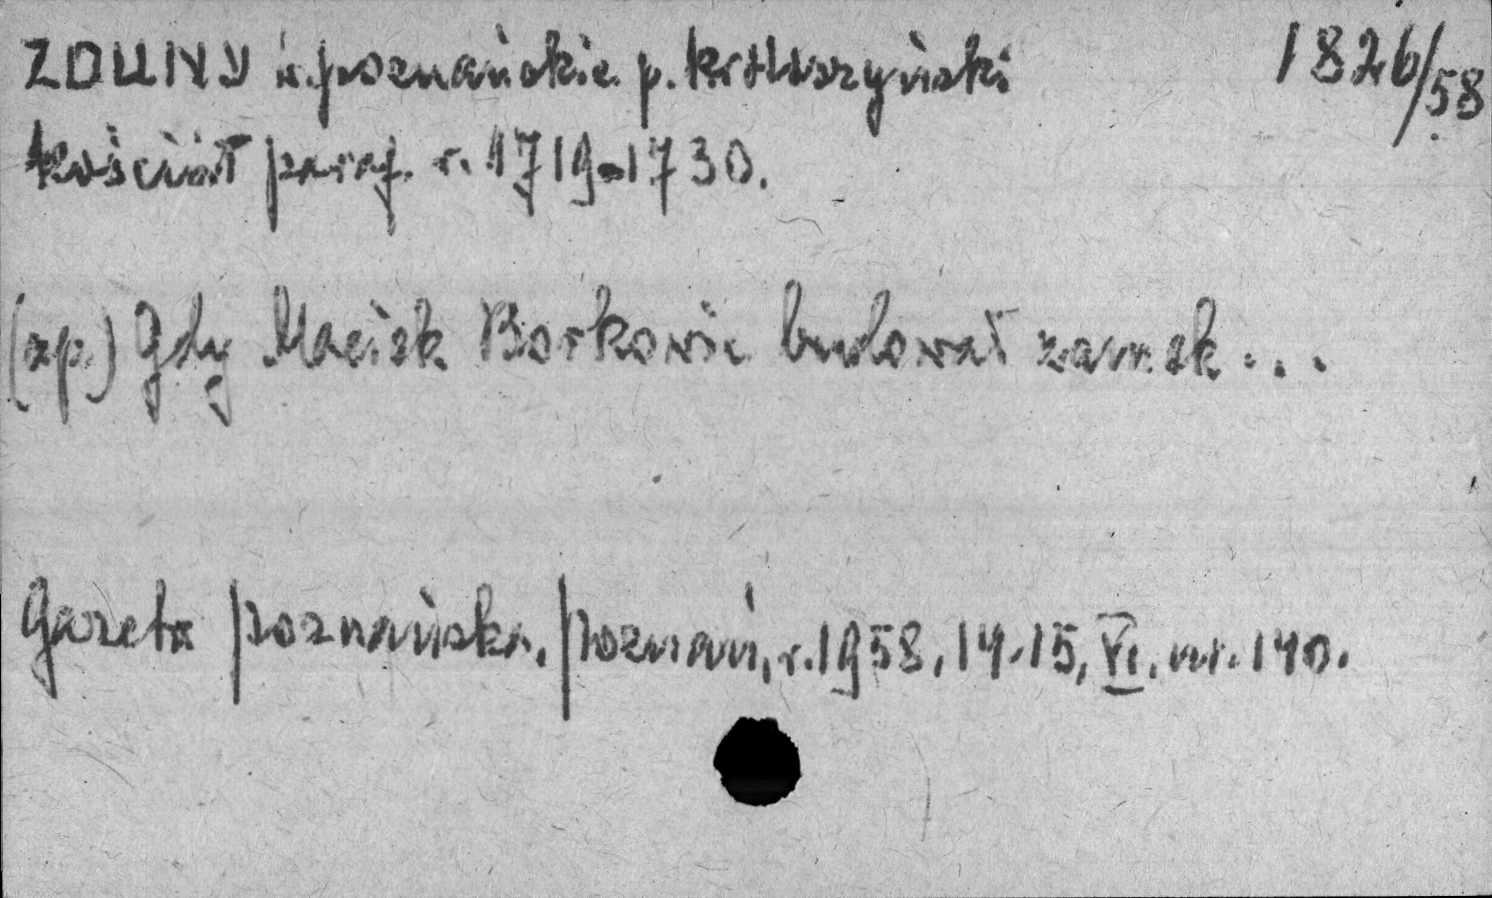 ZDUNY w. poznańskie p. krotoszyński 1826/58
kościół paraf. r. 1719-1730.
(zp.) Gdy Maciek Borkowic budował zamek...
Gazeta poznańska, Poznań, r. 1958, 14-15, VI, nr. 140.